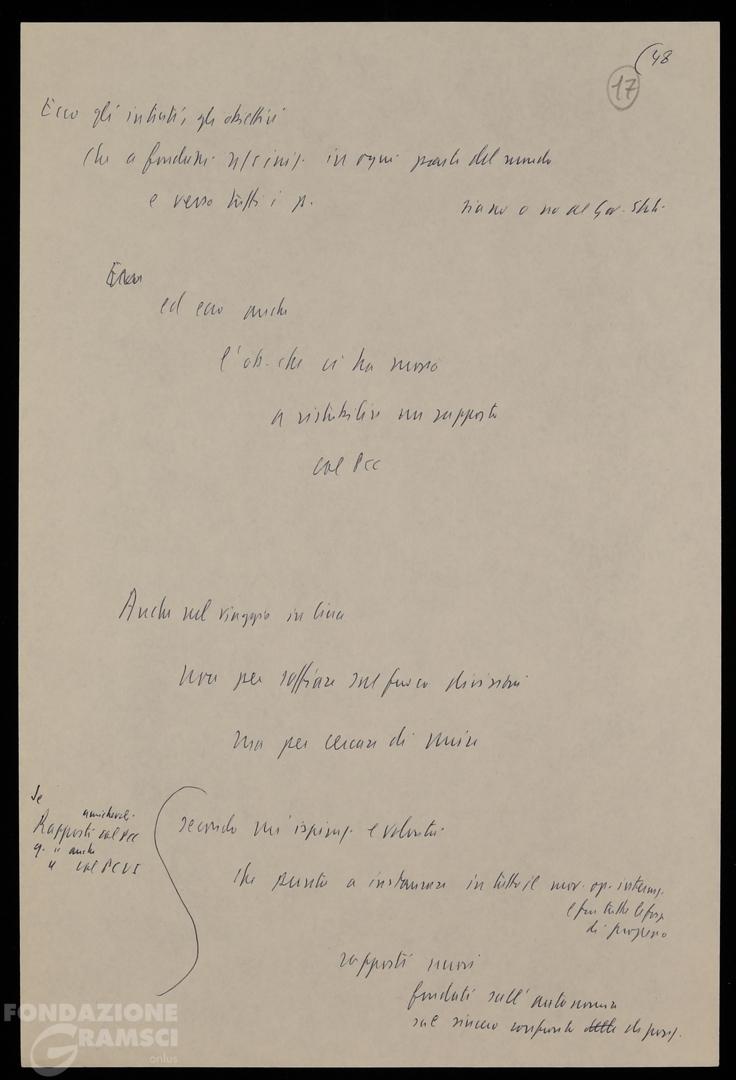 (48
17
Ecco gli intenti, gli obiettivi
che a fondam. in ogni parte del mondo
e verso tutti i p. siano o no al Gov. Stati.
Ecco
ed ecco anche
l'ob. che ci ha mosso
a ristabilire un rapporto
col PCC
Anche nel viaggio in Cina
non per soffiare sul fuoco divisioni
ma per cercare di unire
Se
amichevoli
Rapporti col PCC
anche
col PCUS
secondo un'ispiraz. e volontà
che punta a instaurare in tutto il mov. op. internaz.
e fra tutte le forze
di progresso
rapporti nuovi
fondati sull'autonomia
sul sincero confronto delle di posiz.
FONDAZIONE
GRAMSCI
onlus